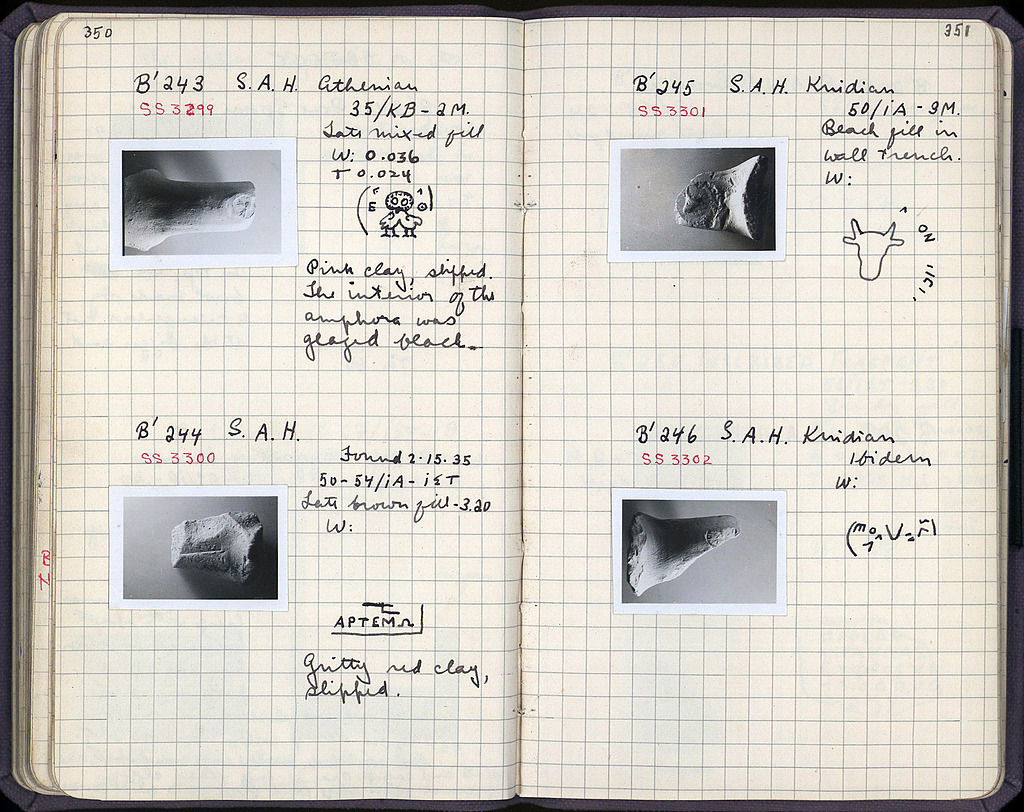 350
B' 243 S. A. H. Athenian
SS 3299
35/KB - 2 M.
Late mixed fill
W: 0.036
T 0.024
Pink clay, slipped.
The interior of the
amphora was
glazed black.
B' 244 S. A. H.
SS 3300
Found 2.15.35
50-54/ΙΑ-ΙΣΤ
Late brown fill - 3.20
W:
ΑΡΤΕΜΩ
Gritty red clay,
slipped.
351
B' 245 S. A. H. Knidian
SS 3301
50/ΙΑ - 3 M.
Beach fill in
wall trench.
W:
B' 246 S. A. H. Knidian
SS 3302
Ibidem
W: